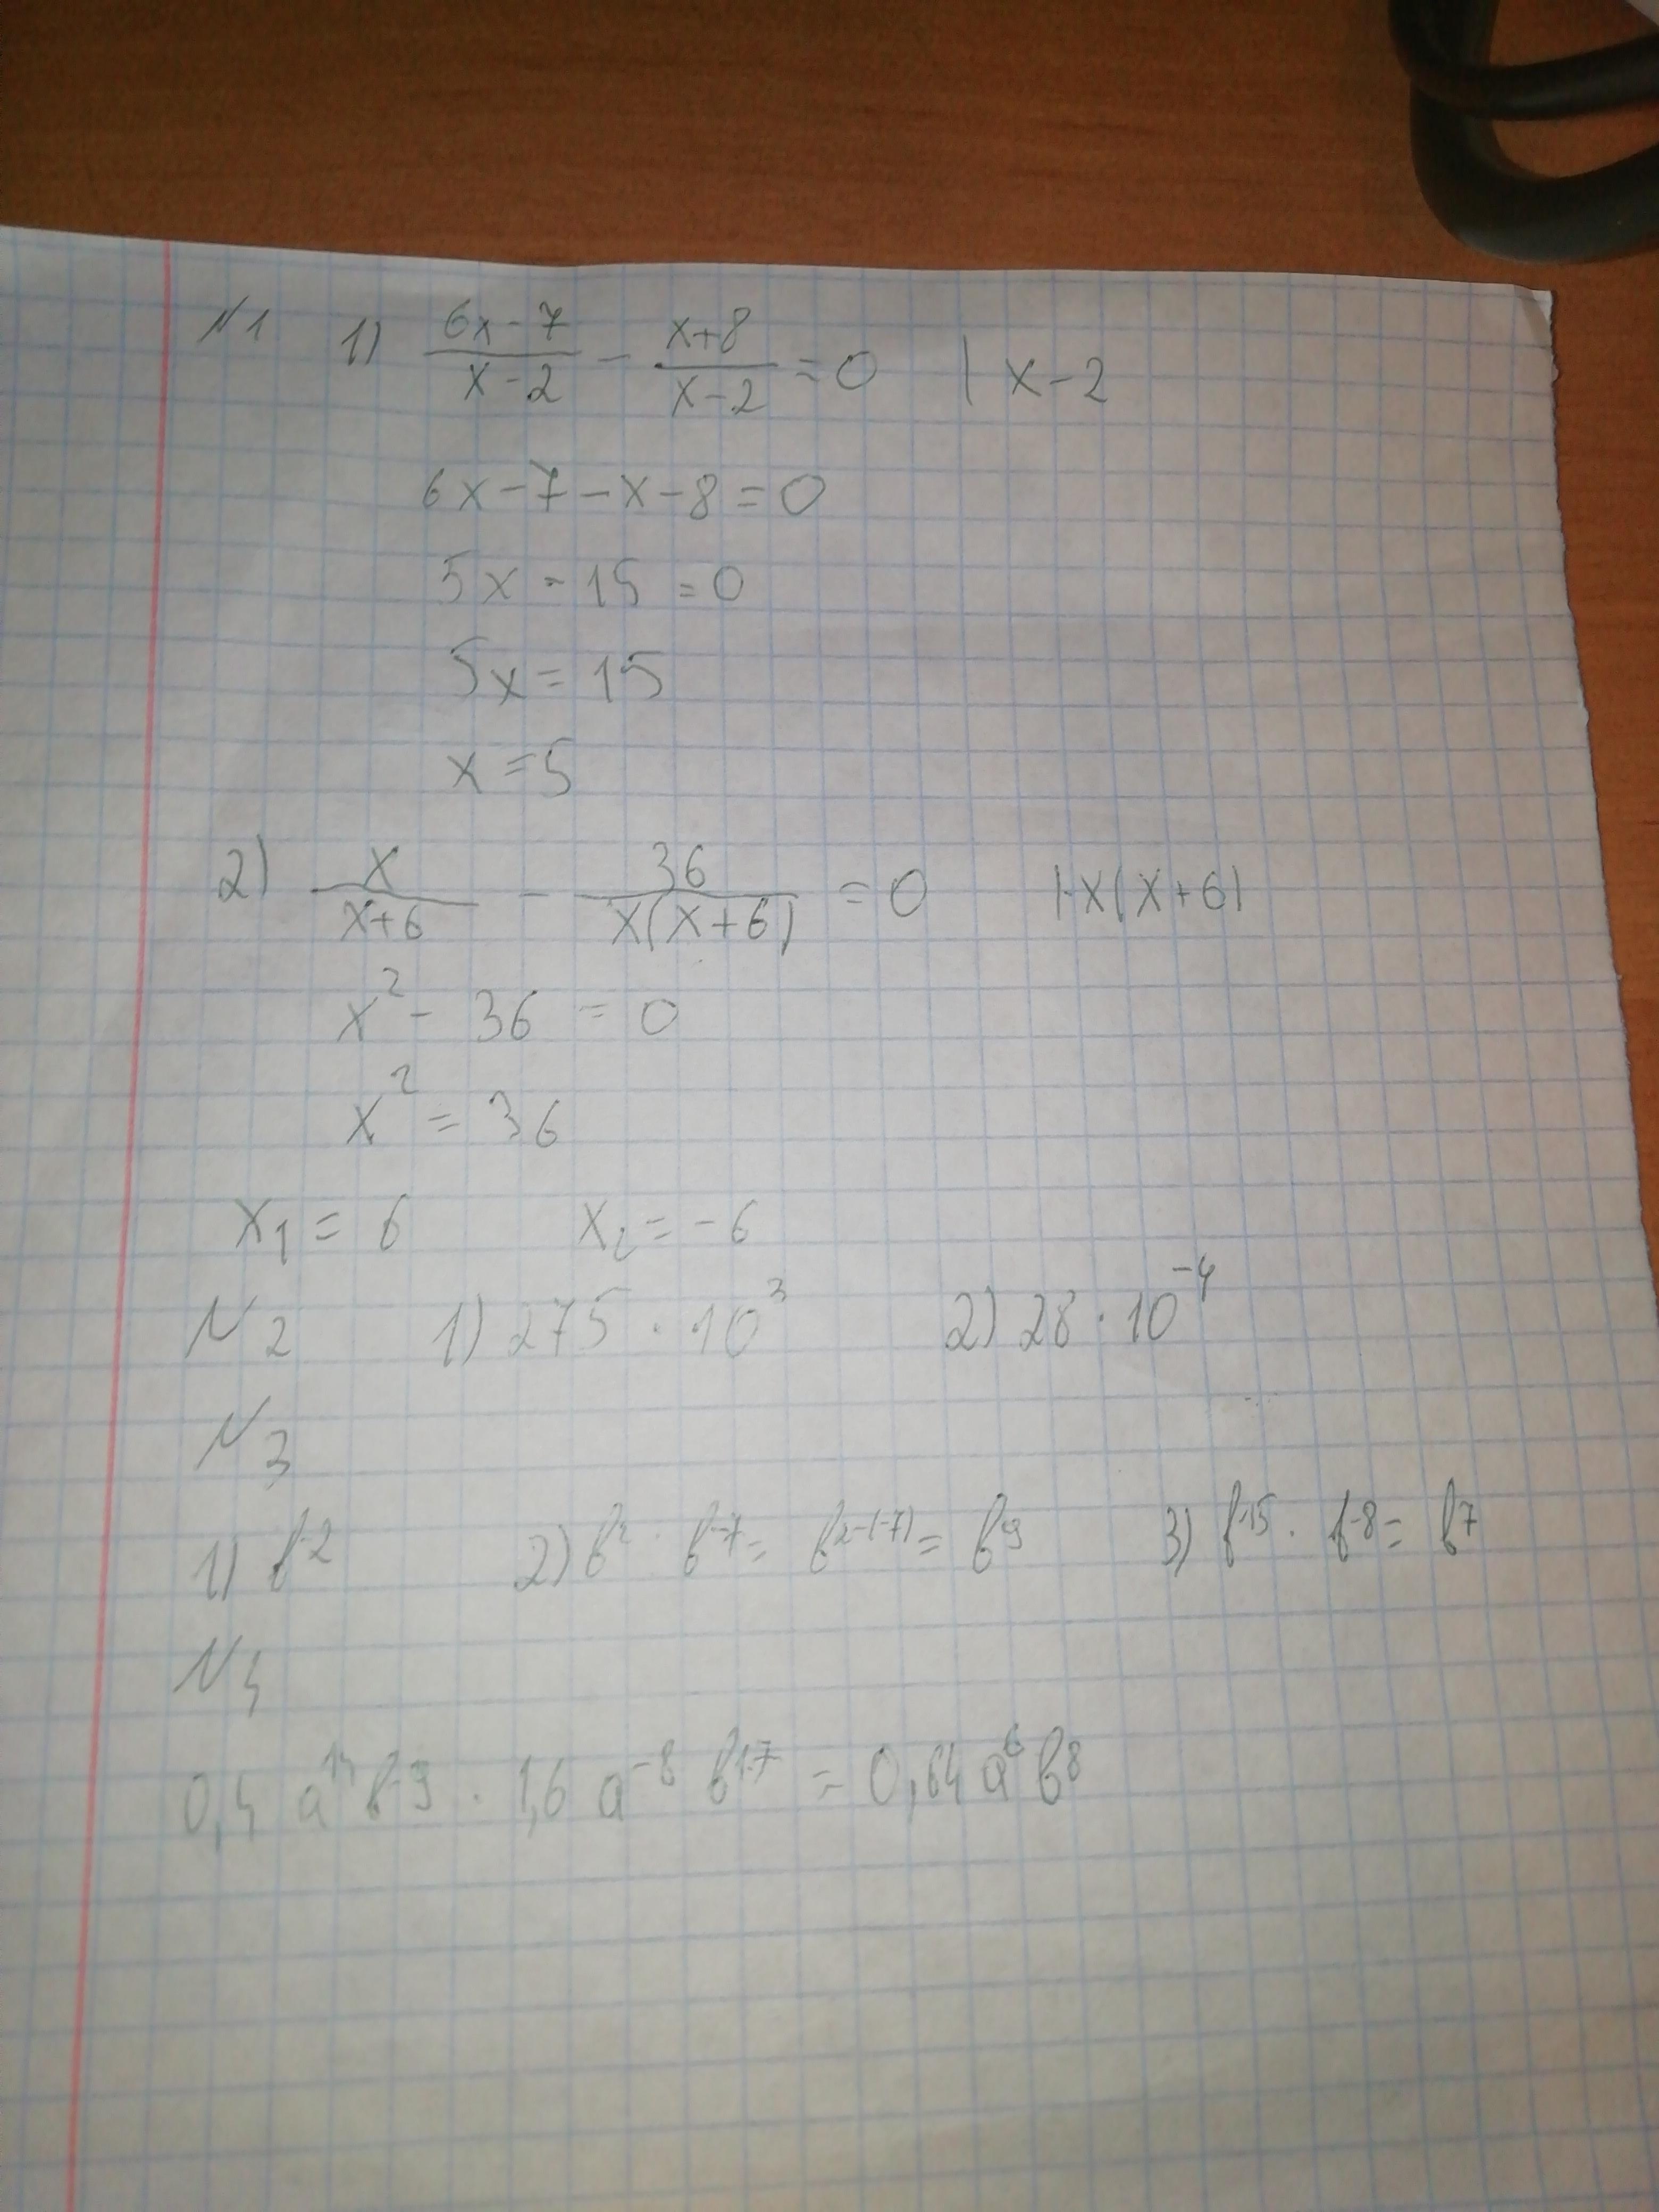 N1 1) (6x-7)/(x-2) - (x+8)/(x-2) = 0 | x-2
6x-7-x-8=0
5x-15=0
5x=15
x=5
2) x/(x+6) - 36/(x(x+6)) = 0 |·x(x+6)
x² - 36 = 0
x² = 36
x₁ = 6 x₂ = -6
N2 1) 275·10³ 2) 28·10⁻⁴
N3
1) b⁻² 2) b²·b⁻⁷= b²⁻⁽⁻⁷⁾= b⁹ 3) b¹⁵·b⁻⁸= b⁷
N4
0,4 a¹⁴b⁻⁹ · 1,6 a⁻⁸ b¹⁷ = 0,64 a⁶b⁸